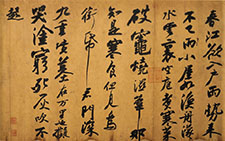 春江欲入戶雨勢來
不已雨小屋如漁舟濛濛
水雲裏空庖煮寒菜
破竈燒濕葦那
知是寒食但見烏
銜帋君門深
九重墳墓在万里也擬
哭塗窮死灰吹不
起